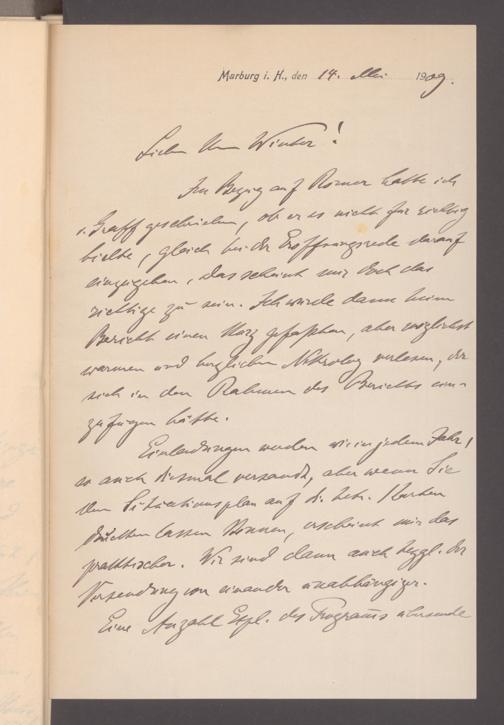 Marburg i. H., den 14. Mai 1909.
Lieber Herr Winter!
In Bezug auf Römer hatte ich
v. Graff geschrieben, ob er es nicht für richtig
hielte, gleich bei der Eröffnungsrede darauf
einzugehen, das scheint mir doch das
richtige zu sein. Ich würde dann beim
Bericht einen kurz gefassten, aber möglichst
warmen und herzlichen Nekrolog verlesen, der
sich in den Rahmen des Berichts ein-
zufügen hätte.
Einladungen werden wie in jedem Jahr,
so auch diesmal versandt, aber wenn Sie
den Situationsplan auf d. betr. Karten
drucken lassen können, erscheint mir das
praktischer. Wir sind dann auch bezgl. der
Versendung von einander unabhängiger.
Eine Anzahl Expl. des Programms übersende